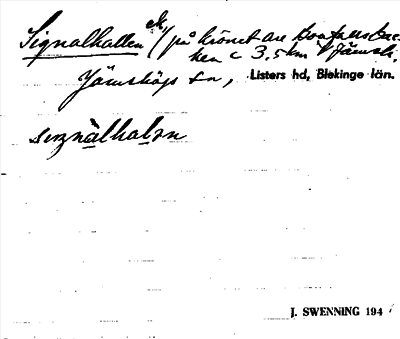 Signalhallen på krönet av
ken c 3,5 km V Jämsh.
Jämshögs sn, Listers hd, Blekinge län.
signàlhalen
J. SWENNING 194